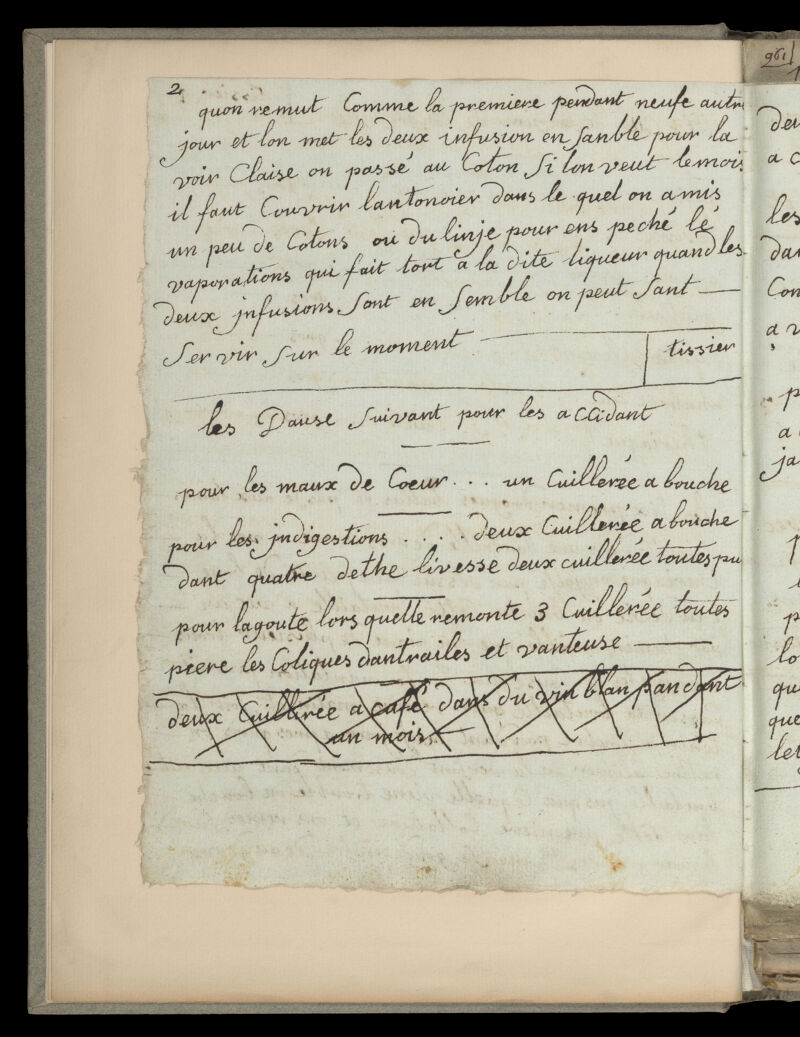 2
quon remut Comme la premiere pendant neufe autr
jour et lon met les deux infusion en sanble pour la
voir Claise on passé au Coton Si lon veut lemois
il faut Couvrir lantonoier dans le quel on amis
un peu de Cotons ou du linje pour ens peché lé
vaporations qui fait tort a la dite liqueur quand les
deux jnfusions Sont en Semble on peut Sant
Ser vir Sur le moment
tissier
les Dause Suivant pour les accidant
pour les maux de Coeur . . . un Cuillerée a bouche
pour les jndigestions . . . . deux Cuillerée a bouche
dant quatre dethe livesse deux cuillerée toutes pu
pour lagoute lors quelle remonte 3 Cuillerée toutes
piere les Coliques dantrailes et vanteuse
deux Cuillerée a café dans du vin blan pandant
un mois
961
1
deu
a c
les
dan
Con
a v
p
a
ja
p
p
lo
qu
que
let